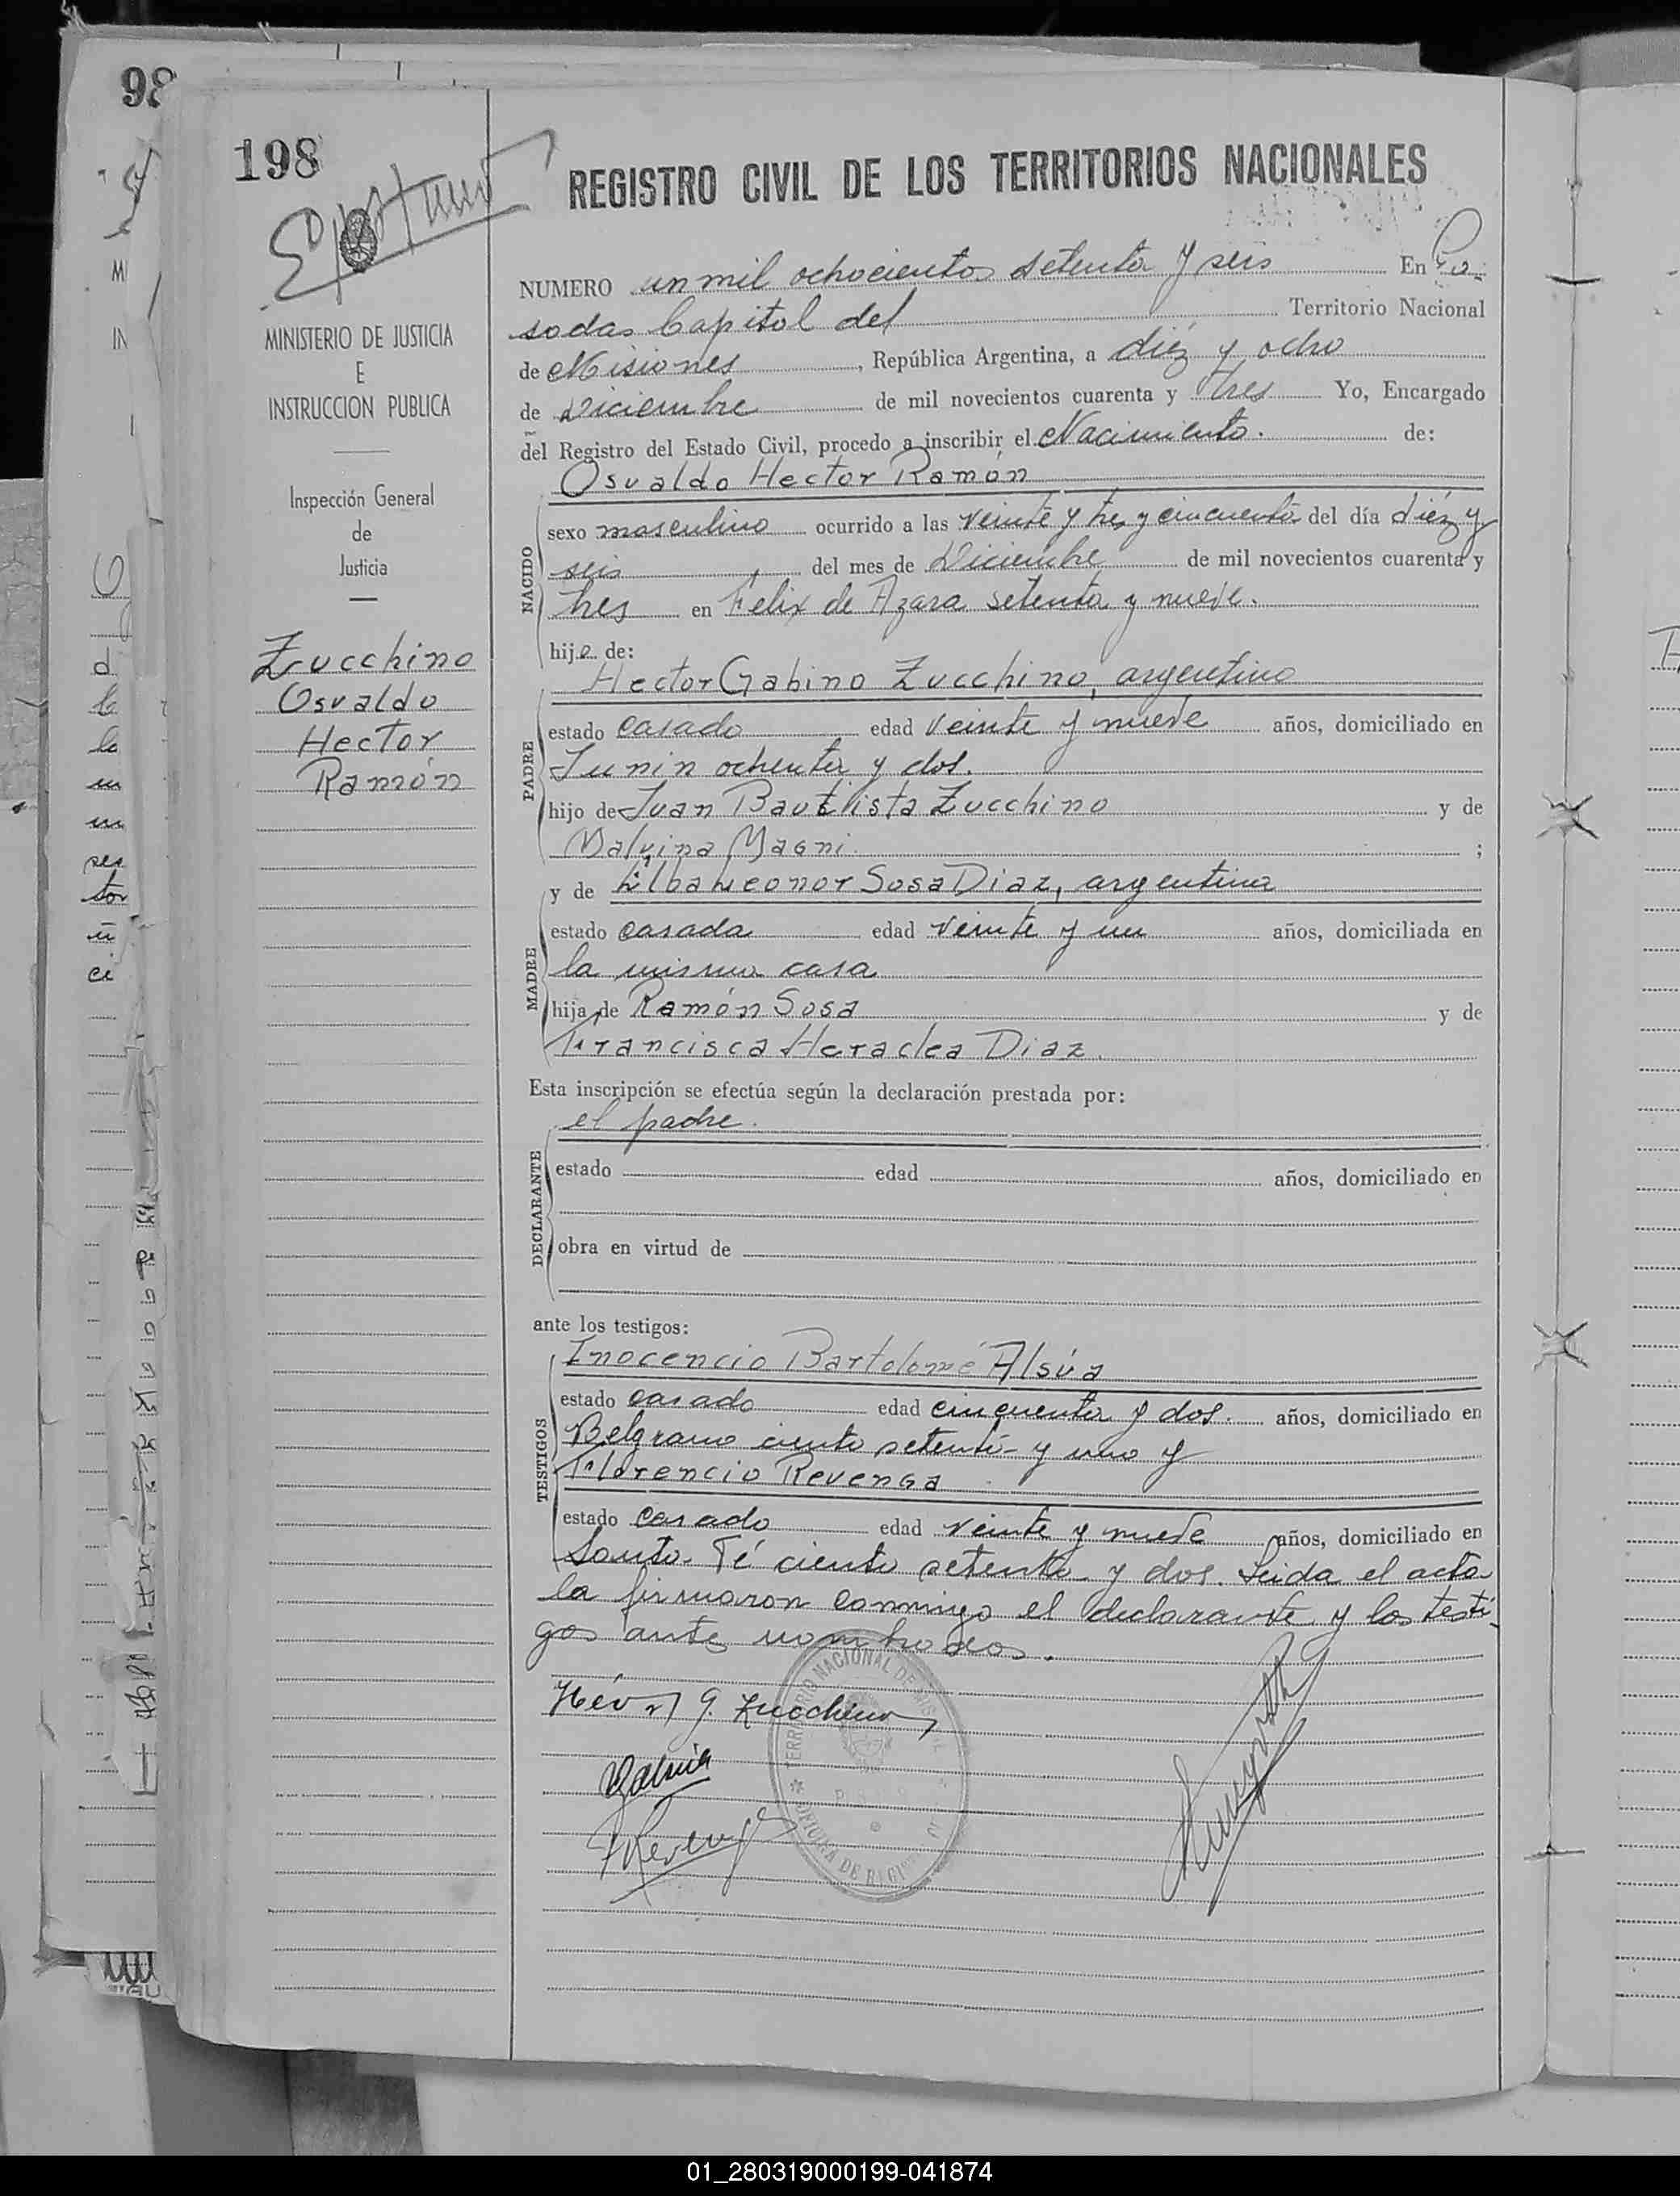 98
198
MINISTERIO DE JUSTICIA
E
INSTRUCCION PUBLICA
Inspección General
de
Justicia
Zucchino
Osvaldo
Hector
Ramón
REGISTRO CIVIL DE LOS TERRITORIOS NACIONALES
NUMERO un mil ochocientos setenta y seis En Po-
sadas Capital del Territorio Nacional
de Misiones, República Argentina, a diéz y ocho
de Diciembre de mil novecientos cuarenta y tres Yo, Encargado
del Registro del Estado Civil, procedo a inscribir el Nacimiento. de:
Osvaldo Hector Ramón
NACIDO
sexo masculino ocurrido a las veinte y tres y cincuenta del día diéz y
seis del mes de Diciembre de mil novecientos cuarenta y
tres en Félix de Azara setenta y nueve.
hijo de:
Hector Gabino Zucchino, argentino
PADRE
estado casado edad veinte y nueve años, domiciliado en
Junin ochenta y dos.
hijo de Juan Bautista Zucchino y de
Malvina Magni. ;
y de Elba Leonor Sosa Diaz, argentina
MADRE
estado casada edad veinte y un años, domiciliada en
la misma casa
hija de Ramón Sosa y de
Francisca Heraclea Diaz.
Esta inscripción se efectúa según la declaración prestada por:
el padre.
DECLARANTE
estado edad años, domiciliado en
obra en virtud de
ante los testigos:
Inocencio Bartolomé Alsúa
TESTIGOS
estado casado edad cincuenta y dos. años, domiciliado en
Belgrano ciento setenta y uno y
Florencio Revenga
estado casado edad veinte y nueve años, domiciliado en
Santa Fé ciento setenta y dos. Leida el acta
la firmaron conmigo el declarante y los testi-
gos ante nombrados.
Héctor G. Zucchino
TERRITORIO NACIONAL DE MISIONES
OFICINA DE REGISTRO
01_280319000199-041874